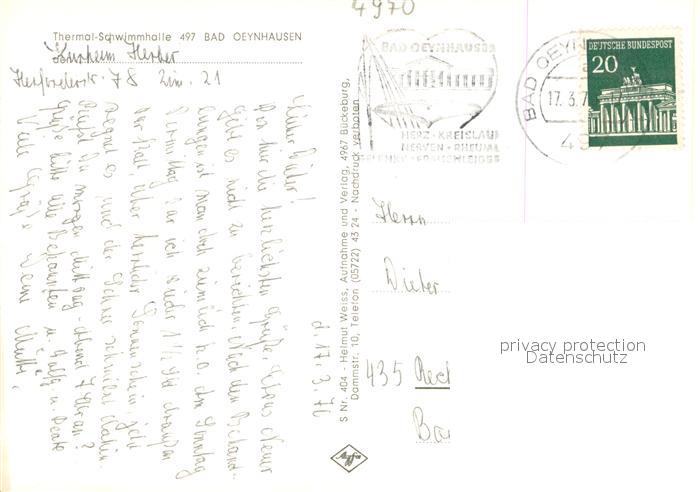 4970
Thermal-Schwimmhalle 497 BAD OEYNHAUSEN
Kurheim Herber
Herforderstr. 78 Zim. 21
d. 17. 3. 70
Lieber Dieter!
Dir nur die herzlichsten Grüße. Etwas Neues
gibt es nicht zu berichten. Nach den Behand-
lungen ist man doch ziemlich k.o. Am Sonntag
Vormittag war ich wieder 1 1/2 Std draußen
war kalt, aber herrlicher Sonnenschein, jetzt
regnet es und der Schnee schmilzt dahin.
Rufst Du morgen Mittwoch-Abend 7 Uhr an?
Grüße bitte alle Bekannten u. u. Beate
Viele Grüße Deine Mutti.
S Nr. 404 - Helmut Weiss, Aufnahme und Verlag, 4967 Bückeburg,
Dammstr. 10, Telefon (05722) 43 24 - Nachdruck verboten
Agfa
BAD OEYNHAUSEN
HERZ-KREISLAUF
NERVEN-RHEUMA
GELENK-
BAD OEYN
17.3.7
49
DEUTSCHE BUNDESPOST
20
Herrn
Dieter
435 Reckl
privacy protection
Datenschutz